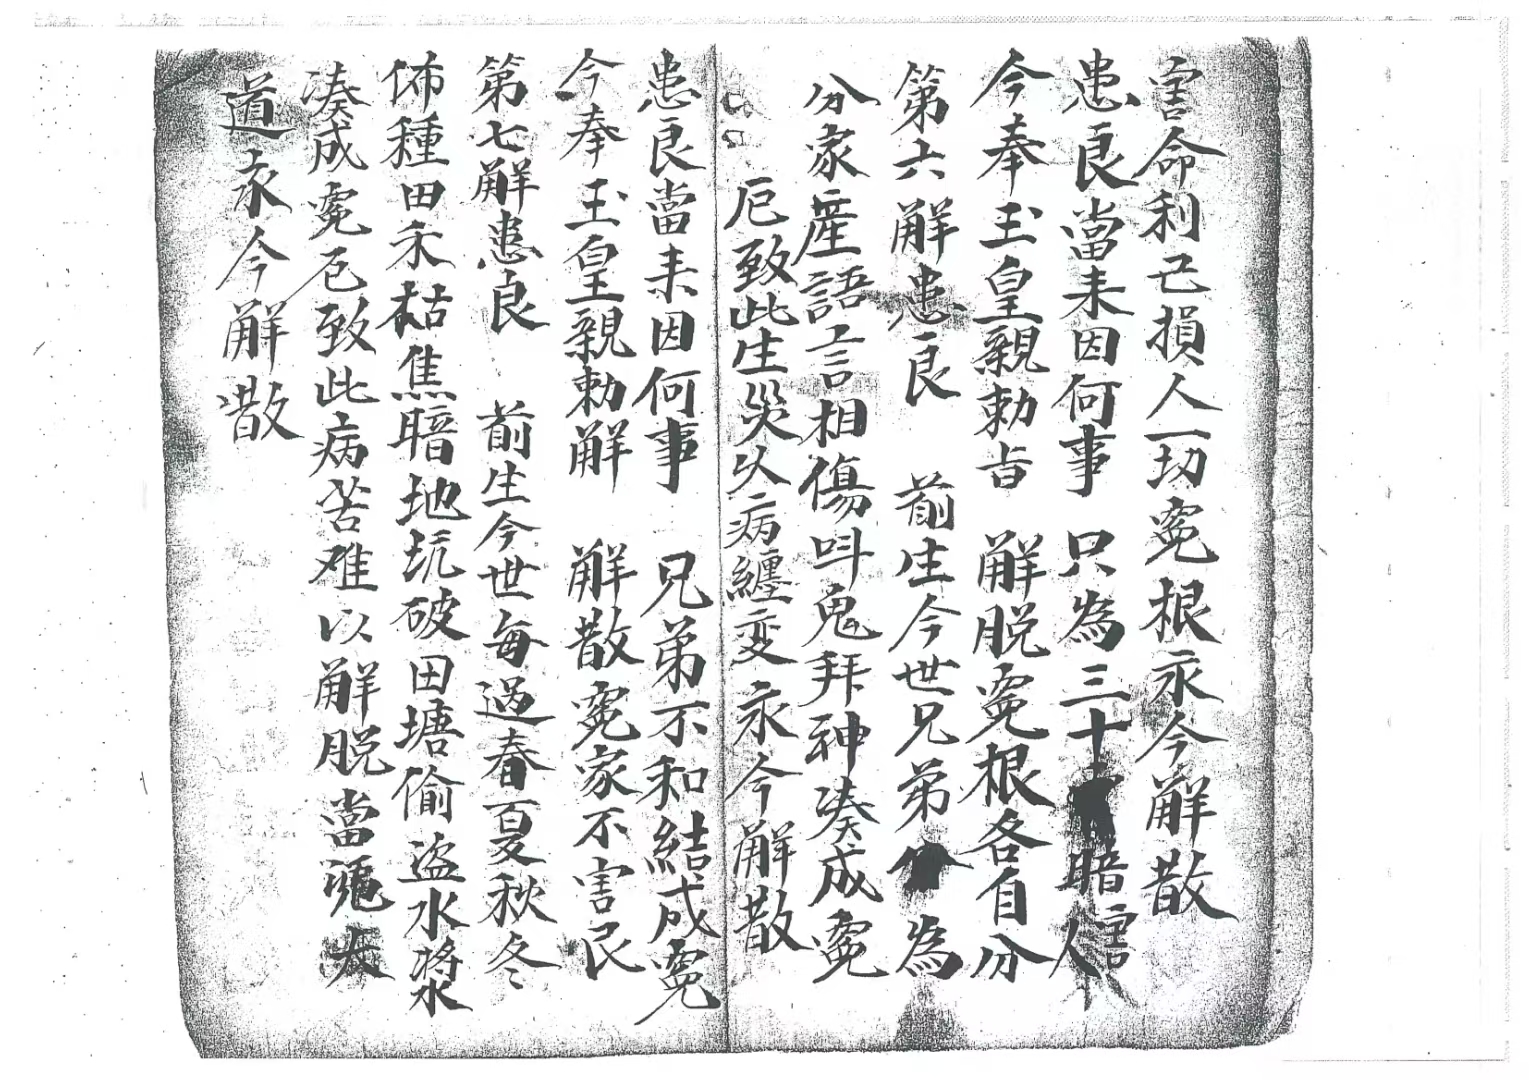 害命利己損人一切寃根永今解散
患良當耒因何事 只為三十暗害人
今奉玉皇親勅旨 解脱寃根各自分
第六解患良 前生今世兄弟為
分家産語言相傷呌鬼拜神凑成寃
厄致此生災乆病纏变永今解散
患良當耒因何事 兄弟不和結成寃
今奉玉皇親勅解 解散寃家不害良
第七解患良 前生今世每過春夏秋冬
佈種田禾枯焦暗地坑破田塘偷盗水漿
凑成寃厄致此病苦难以解脱當
道永今解散